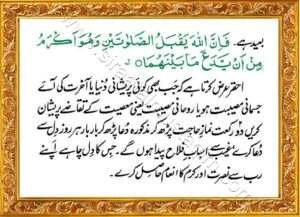 بعید ہے۔ فَإِنَّ اللّٰهَ يَقْبَلُ الصَّلٰوتَيْنِ وَهُوَ أَكْرَمُ
مِنْ أَنْ يَدَعَ مَا بَيْنَهُمَا
احقر عرض کرتا ہے کہ جب بھی کوئی پریشانی دنیا یا آخرت کی آئے
جسمانی مصیبت ہو یا روحانی یعنی معصیت کے تقاضے پریشان
کریں دو رکعت نماز حاجت پڑھ کر مذکورہ دعا پڑھ کر بار بار ہر روز دل سے
دعا کرے غیب سے اسباب فلاح پیدا ہوں گے۔ جس کا دل چاہے اپنے
رب سے نصرت اور کرم کا انعام حاصل کرے۔